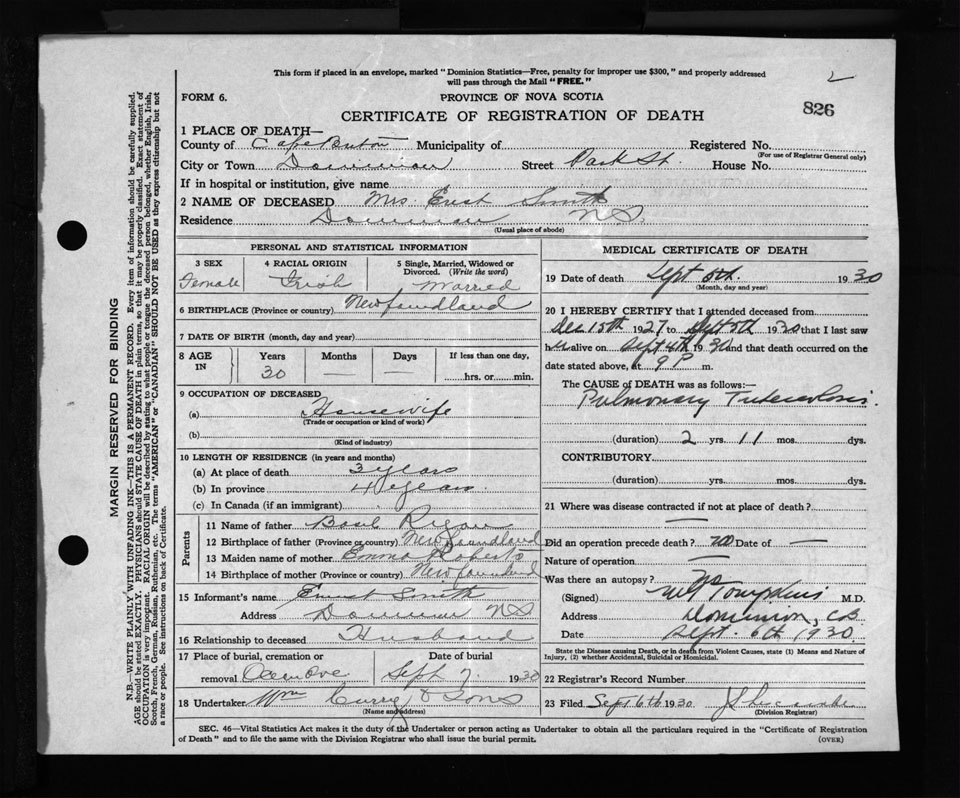 This form if placed in an envelope, marked "Dominion Statistics—Free, penalty for improper use $300," and properly addressed
will pass through the Mail "FREE."
2
FORM 6.
PROVINCE OF NOVA SCOTIA
826
CERTIFICATE OF REGISTRATION OF DEATH
1 PLACE OF DEATH—
County of Cape Breton Municipality of Registered No.
(For use of Registrar General only)
City or Town Dominion Street Park St. House No.
If in hospital or institution, give name
2 NAME OF DECEASED Mrs. Ernst Smith
Residence Dominion NS.
(Usual place of abode)
PERSONAL AND STATISTICAL INFORMATION
3 SEX 4 RACIAL ORIGIN 5 Single, Married, Widowed or
Divorced. (Write the word)
Female Irish Married
6 BIRTHPLACE (Province or country) Newfoundland
7 DATE OF BIRTH (month, day and year)
8 AGE IN Years Months Days If less than one day,
30 — — hrs. or min.
9 OCCUPATION OF DECEASED
(a) Housewife
(Trade or occupation or kind of work)
(b)
(Kind of industry)
10 LENGTH OF RESIDENCE (in years and months)
(a) At place of death 3 years
(b) In province 4 years
(c) In Canada (if an immigrant)
Parents
11 Name of father Basil Ryan
12 Birthplace of father (Province or country) Newfoundland
13 Maiden name of mother Emma Roberts
14 Birthplace of mother (Province or country) Newfoundland
15 Informant's name Ernest Smith
Address Dominion NS
16 Relationship to deceased Husband
17 Place of burial, cremation or Date of burial
removal Sept 7. 1930
18 Undertaker Wm Curry & Sons
(Name and address)
MEDICAL CERTIFICATE OF DEATH
19 Date of death Sept 5th. 1930
(Month, day and year)
20 I HEREBY CERTIFY that I attended deceased from
Dec 15th 1927 to Sept 5th 1930 that I last saw
her alive on Sept 4th 1930 and that death occurred on the
date stated above, at 9 P m.
The CAUSE OF DEATH was as follows:—
Pulmonary Tuberculosis.
(duration) 2 yrs. 11 mos. dys.
CONTRIBUTORY
(duration) yrs. mos. dys.
21 Where was disease contracted if not at place of death?
—
Did an operation precede death? no Date of —
Nature of operation —
Was there an autopsy? No
(Signed) MG Tompkins M.D.
Address Dominion, CB
Date Sept. 6th 1930.
State the Disease causing Death, or in death from Violent Causes, state (1) Means and Nature of
Injury, (2) whether Accidental, Suicidal or Homicidal.
22 Registrar's Record Number
23 Filed Sept 6th 1930
(Division Registrar)
SEC. 46—Vital Statistics Act makes it the duty of the Undertaker or person acting as Undertaker to obtain all the particulars required in the "Certificate of Registration
of Death" and to file the same with the Division Registrar who shall issue the burial permit.
(OVER)
MARGIN RESERVED FOR BINDING
N.B.—WRITE PLAINLY WITH UNFADING INK—THIS IS A PERMANENT RECORD. Every item of information should be carefully supplied.
AGE should be stated EXACTLY. PHYSICIANS should STATE CAUSE OF DEATH in plain terms, so that it may be properly classified. Exact statement of
OCCUPATION is very important. RACIAL ORIGIN will be described by stating to what people or tongue the deceased person belonged, whether English, Irish,
Scotch, French, German, Russian, Ruthenian, etc. The terms "AMERICAN" or "CANADIAN" SHOULD NOT BE USED as they express citizenship but not
a race or people. See instructions on back of Certificate.